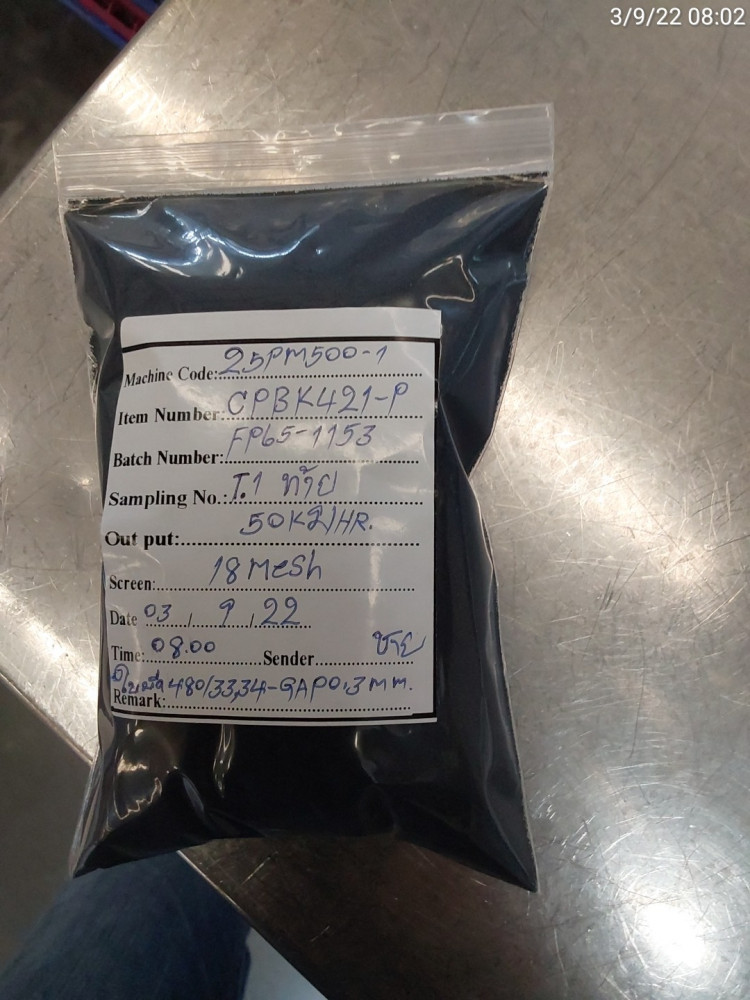 3/9/22 08:02
Machine Code: 25PM500-1
Item Number: CPBK421-P
Batch Number: FP65-1153
Sampling No.: T.1 ท้าย
Out put: 50Kg/HR.
Screen: 18 Mesh
Date 03 / 9 / 22
Time: 08.00 Sender ชาย
ใบมีด 480/33,34-GAP 0.3 mm.
Remark: